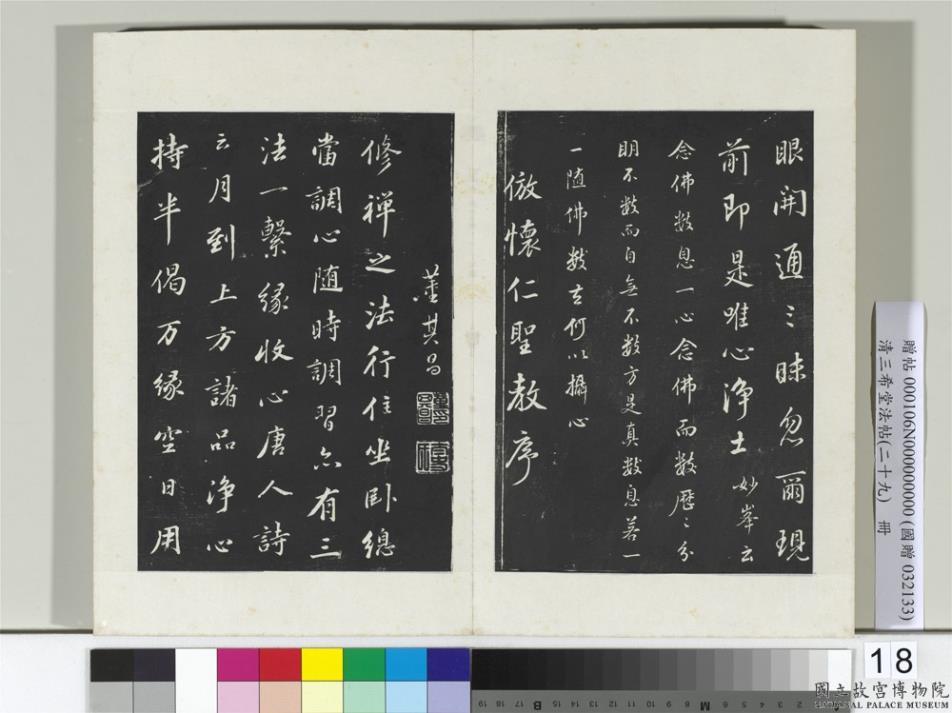 眼開通〻昧忽爾現
前即是唯心淨土妙峯云
念佛數息一心念佛而數歷〻分
明不數而自無不數方是真數息若一
一随佛數去何以攝心
倣懷仁聖教序
董其昌
修禅之法行住坐卧總
當調心随時調習亦有三
法一繫緣收心唐人詩
云月到上方諸品淨心
持半偈万緣空日用
贈帖 000106N000000000 (國贈 032133)
清三希堂法帖(二十九) 冊
18
國立故宮博物院
NATIONAL PALACE MUSEUM
19 18 17 16 15 B 12 11 10 9 8 M 6 5 4 3 2 1